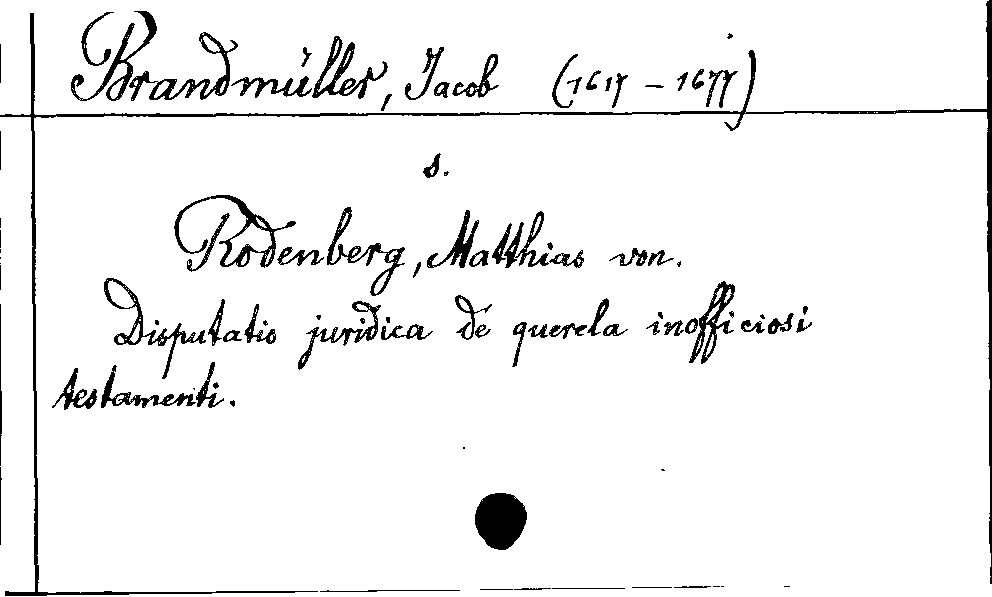 Brandmüller, Jacob (1617 – 1677)
s.
Rodenberg, Matthias von.
Disputatio juridica de querela inofficiosi
testamenti.